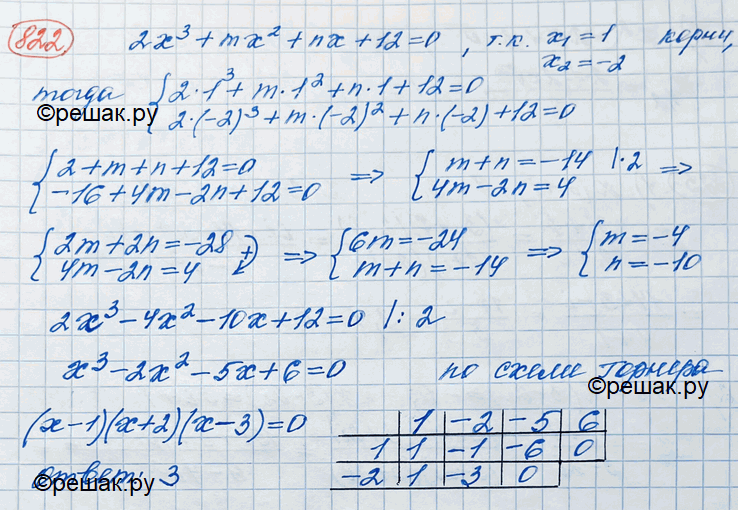 822.
2x³ + mx² + nx + 12 = 0, т.к. x₁ = 1 корни,
x₂ = -2
тогда { 2·1³ + m·1² + n·1 + 12 = 0
©решак.ру
2·(-2)³ + m·(-2)² + n·(-2) + 12 = 0
{ 2 + m + n + 12 = 0 => { m + n = -14 |·2 =>
-16 + 4m - 2n + 12 = 0 4m - 2n = 4
{ 2m + 2n = -28 + => { 6m = -24 => { m = -4
4m - 2n = 4 m + n = -14 n = -10
2x³ - 4x² - 10x + 12 = 0 |: 2
x³ - 2x² - 5x + 6 = 0 по схеме Горнера
©решак.ру
(x-1)(x+2)(x-3) = 0
1 -2 -5 6
1 1 -1 -6 0
-2 1 -3 0
ответ: 3
©решак.ру